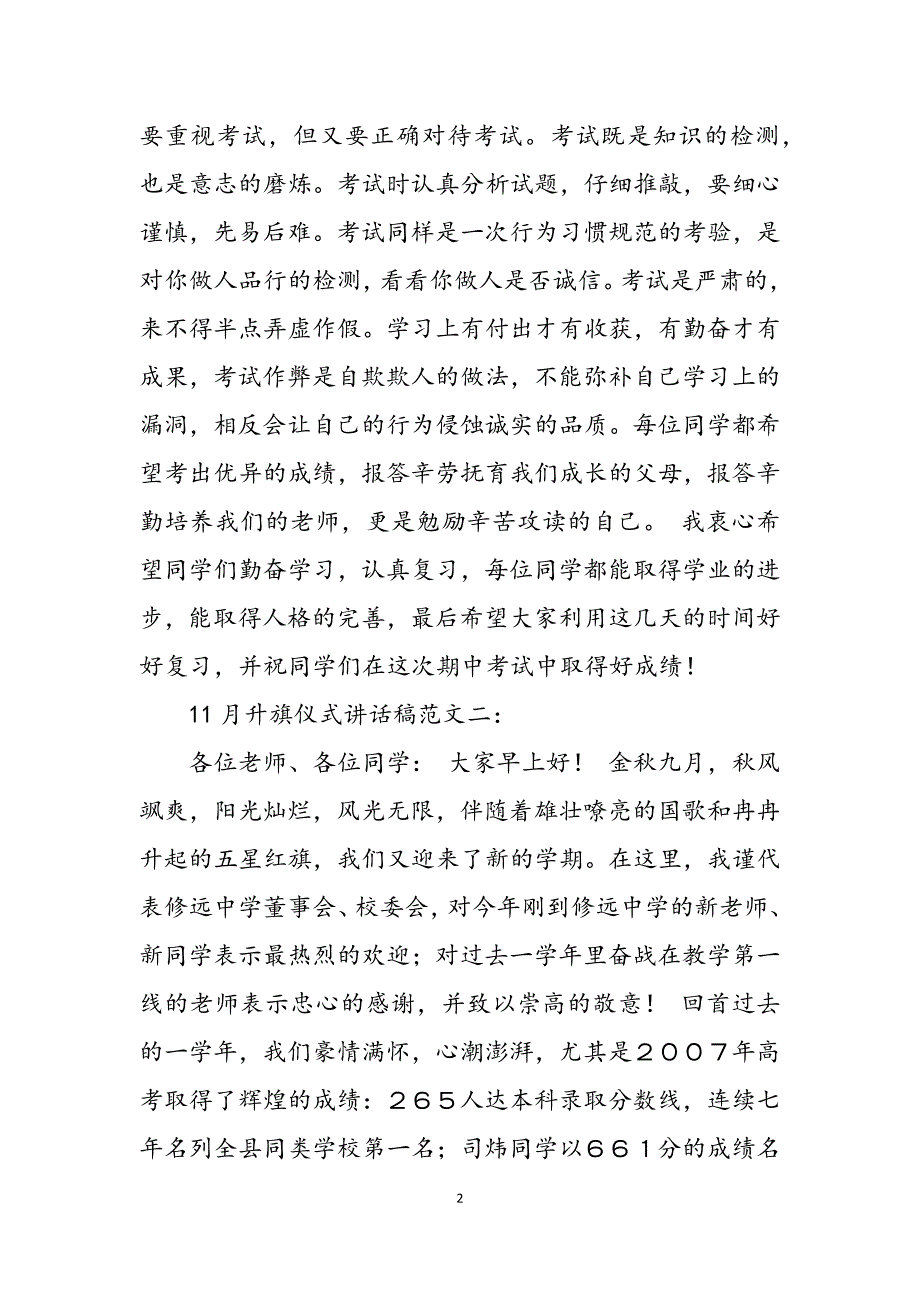 要重视考试，但又要正确对待考试。考试既是知识的检测，
也是意志的磨炼。考试时认真分析试题，仔细推敲，要细心
谨慎，先易后难。考试同样是一次行为习惯规范的考验，是
对你做人品行的检测，看看你做人是否诚信。考试是严肃的，
来不得半点弄虚作假。学习上有付出才有收获，有勤奋才有
成果，考试作弊是自欺欺人的做法，不能弥补自己学习上的
漏洞，相反会让自己的行为侵蚀诚实的品质。每位同学都希
望考出优异的成绩，报答辛劳抚育我们成长的父母，报答辛
勤培养我们的老师，更是勉励辛苦攻读的自己。 我衷心希
望同学们勤奋学习，认真复习，每位同学都能取得学业的进
步，能取得人格的完善，最后希望大家利用这几天的时间好
好复习，并祝同学们在这次期中考试中取得好成绩！
11 月升旗仪式讲话稿范文二：
各位老师、各位同学： 大家早上好！ 金秋九月，秋风
飒爽，阳光灿烂，风光无限，伴随着雄壮嘹亮的国歌和冉冉
升起的五星红旗，我们又迎来了新的学期。在这里，我谨代
表修远中学董事会、校委会，对今年刚到修远中学的新老师、
新同学表示最热烈的欢迎；对过去一学年里奋战在教学第一
线的老师表示忠心的感谢，并致以崇高的敬意！ 回首过去
的一学年，我们豪情满怀，心潮澎湃，尤其是２００７年高
考取得了辉煌的成绩：２６５人达本科录取分数线，连续七
年名列全县同类学校第一名；司炜同学以６６１分的成绩名
2